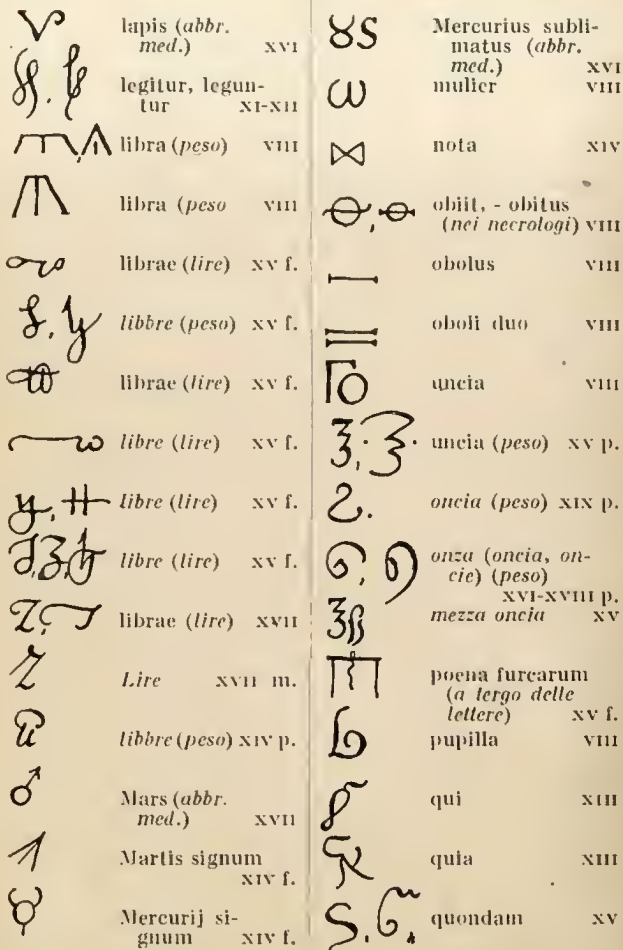 lapis (abbr.
med.) XVI
legitur, legun-
tur XI-XII
libra (peso) VIII
libra (peso VIII
librae (lire) XV f.
libbre (peso) XV f.
librae (lire) XV f.
libre (lire) XV f.
libre (lire) XV f.
libre (lire) XV f.
librae (lire) XVII
Lire XVII m.
libbre (peso) XIV p.
♂ Mars (abbr.
med.) XVII
Martis signum
XIV f.
Mercurij si-
gnum XIV f.
♉S Mercurius subli-
matus (abbr.
med.) XVI
ω mulier VIII
⋈ nota XIV
obiit, - obitus
(nei necrologi) VIII
obolus VIII
oboli duo VIII
uncia VIII
uncia (peso) XV p.
oncia (peso) XIX p.
onza (oncia, on-
cie) (peso)
XVI-XVIII p.
mezza oncia XV
poena furcarum
(a tergo delle
lettere) XV f.
pupilla VIII
qui XIII
quia XIII
quondam XV